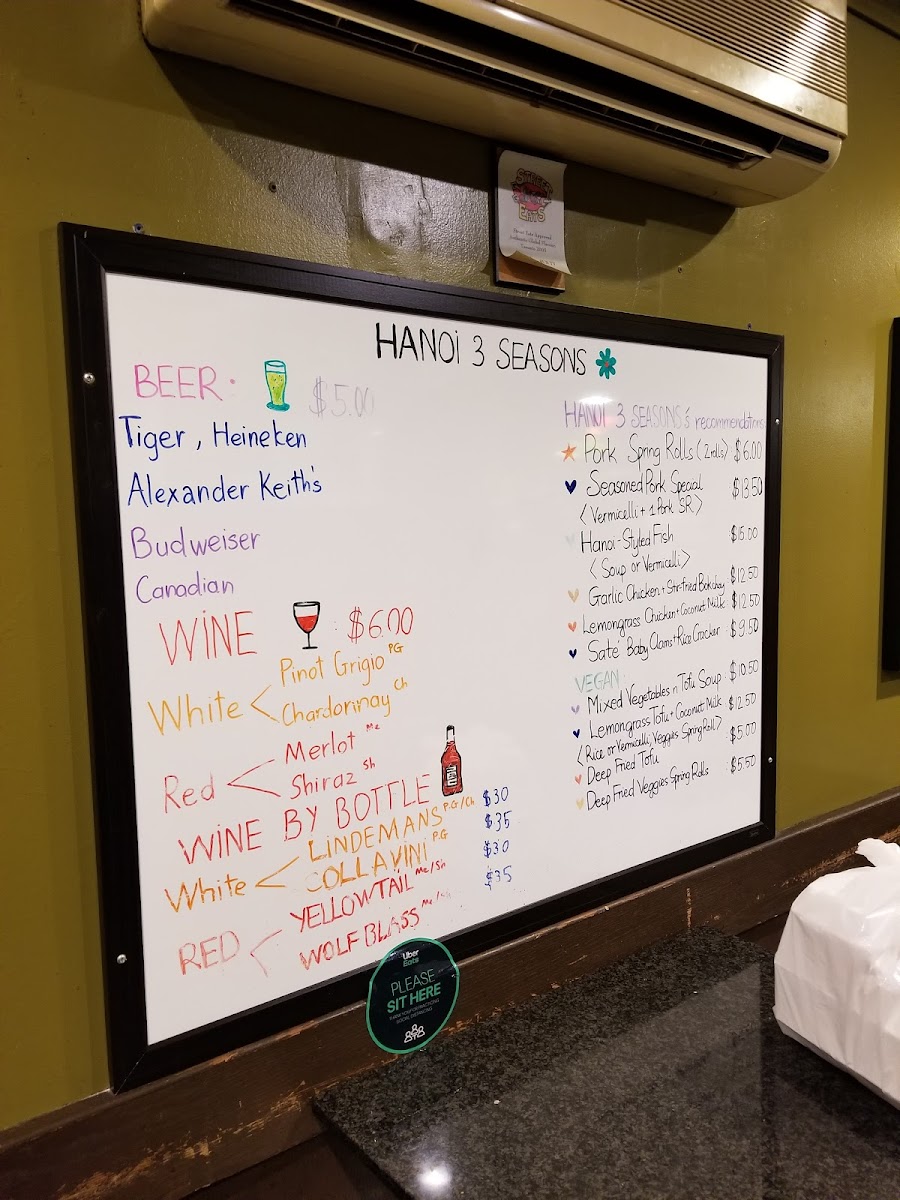 STREET
EATS
HANOi 3 SEASONS
BEER: $5.00
Tiger, Heineken
Alexander Keith's
Budweiser
Canadian
WiNE : $6.00
White < Pinot Grigio PG
Chardorinay Ch
Red < Merlot Me
Shiraz Sh
WiNE BY BOTTLE
White < LINDEMANS P.G/Ch $30
COLLAVINI P.G $35
RED < YELLOWTAIL Me/Sh $30
WOLF BLASS Me/Sh $35
HANOI 3 SEASONS's recommendations:
Pork Spring Rolls (2 rolls) $6.00
Seasoned Pork Special $13.50
<Vermicelli + 1 Pork SR>
Hanoi-Styled Fish $15.00
<Soup or Vermicelli>
Garlic Chicken + Stir-fried Bokchoy $12.50
Lemongrass Chicken + Coconut Milk $12.50
Saté Baby Clams + Rice Cracker : $9.50
VEGAN:
Mixed Vegetables n Tofu Soup : $10.50
Lemongrass Tofu + Coconut Milk : $12.50
<Rice or Vermicelli, Veggies Spring Roll>
Deep Fried Tofu : $5.00
Deep Fried Veggies Spring Rolls : $5.50
Uber
Eats
PLEASE
SIT HERE
THANK YOU FOR PRACTICING
SOCIAL DISTANCING